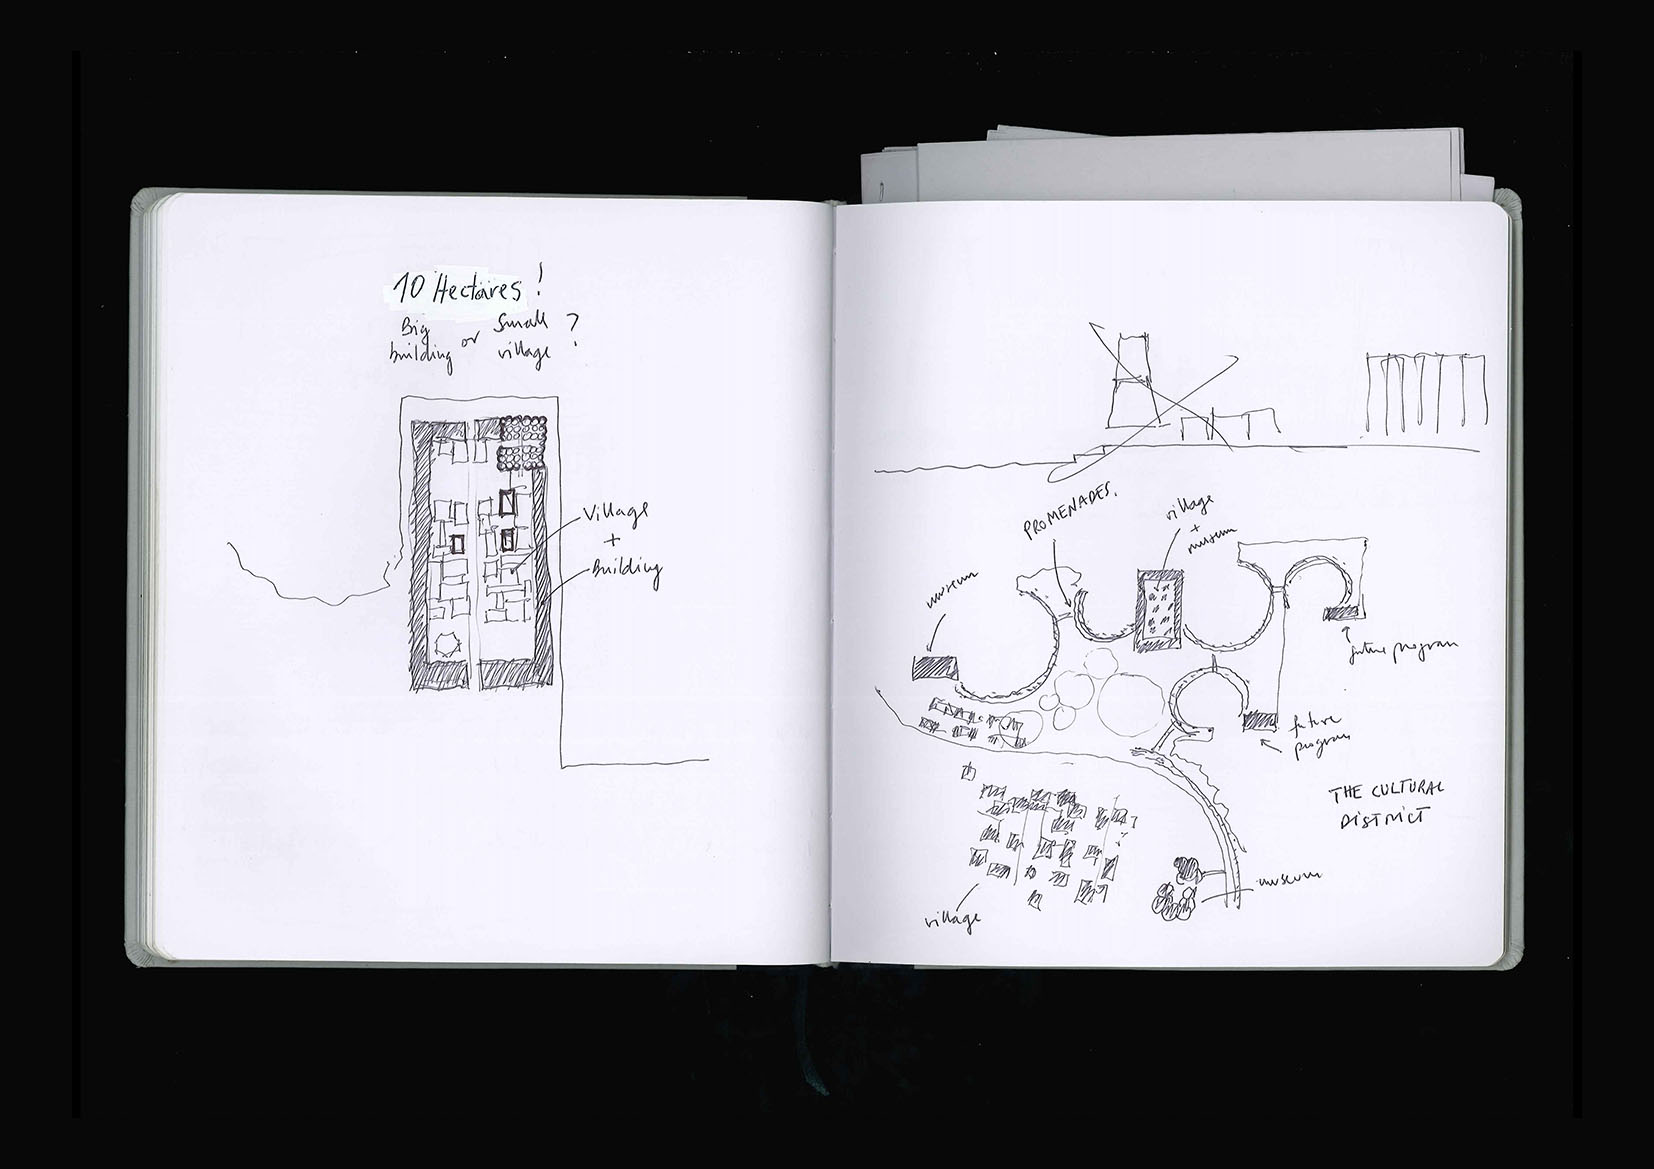 10 Hectares !
Big building or Small village ?
Village
+
Building
PROMENADES.
village
+
museum
museum
future program
future
program
THE CULTURAL
DISTRICT
museum
village